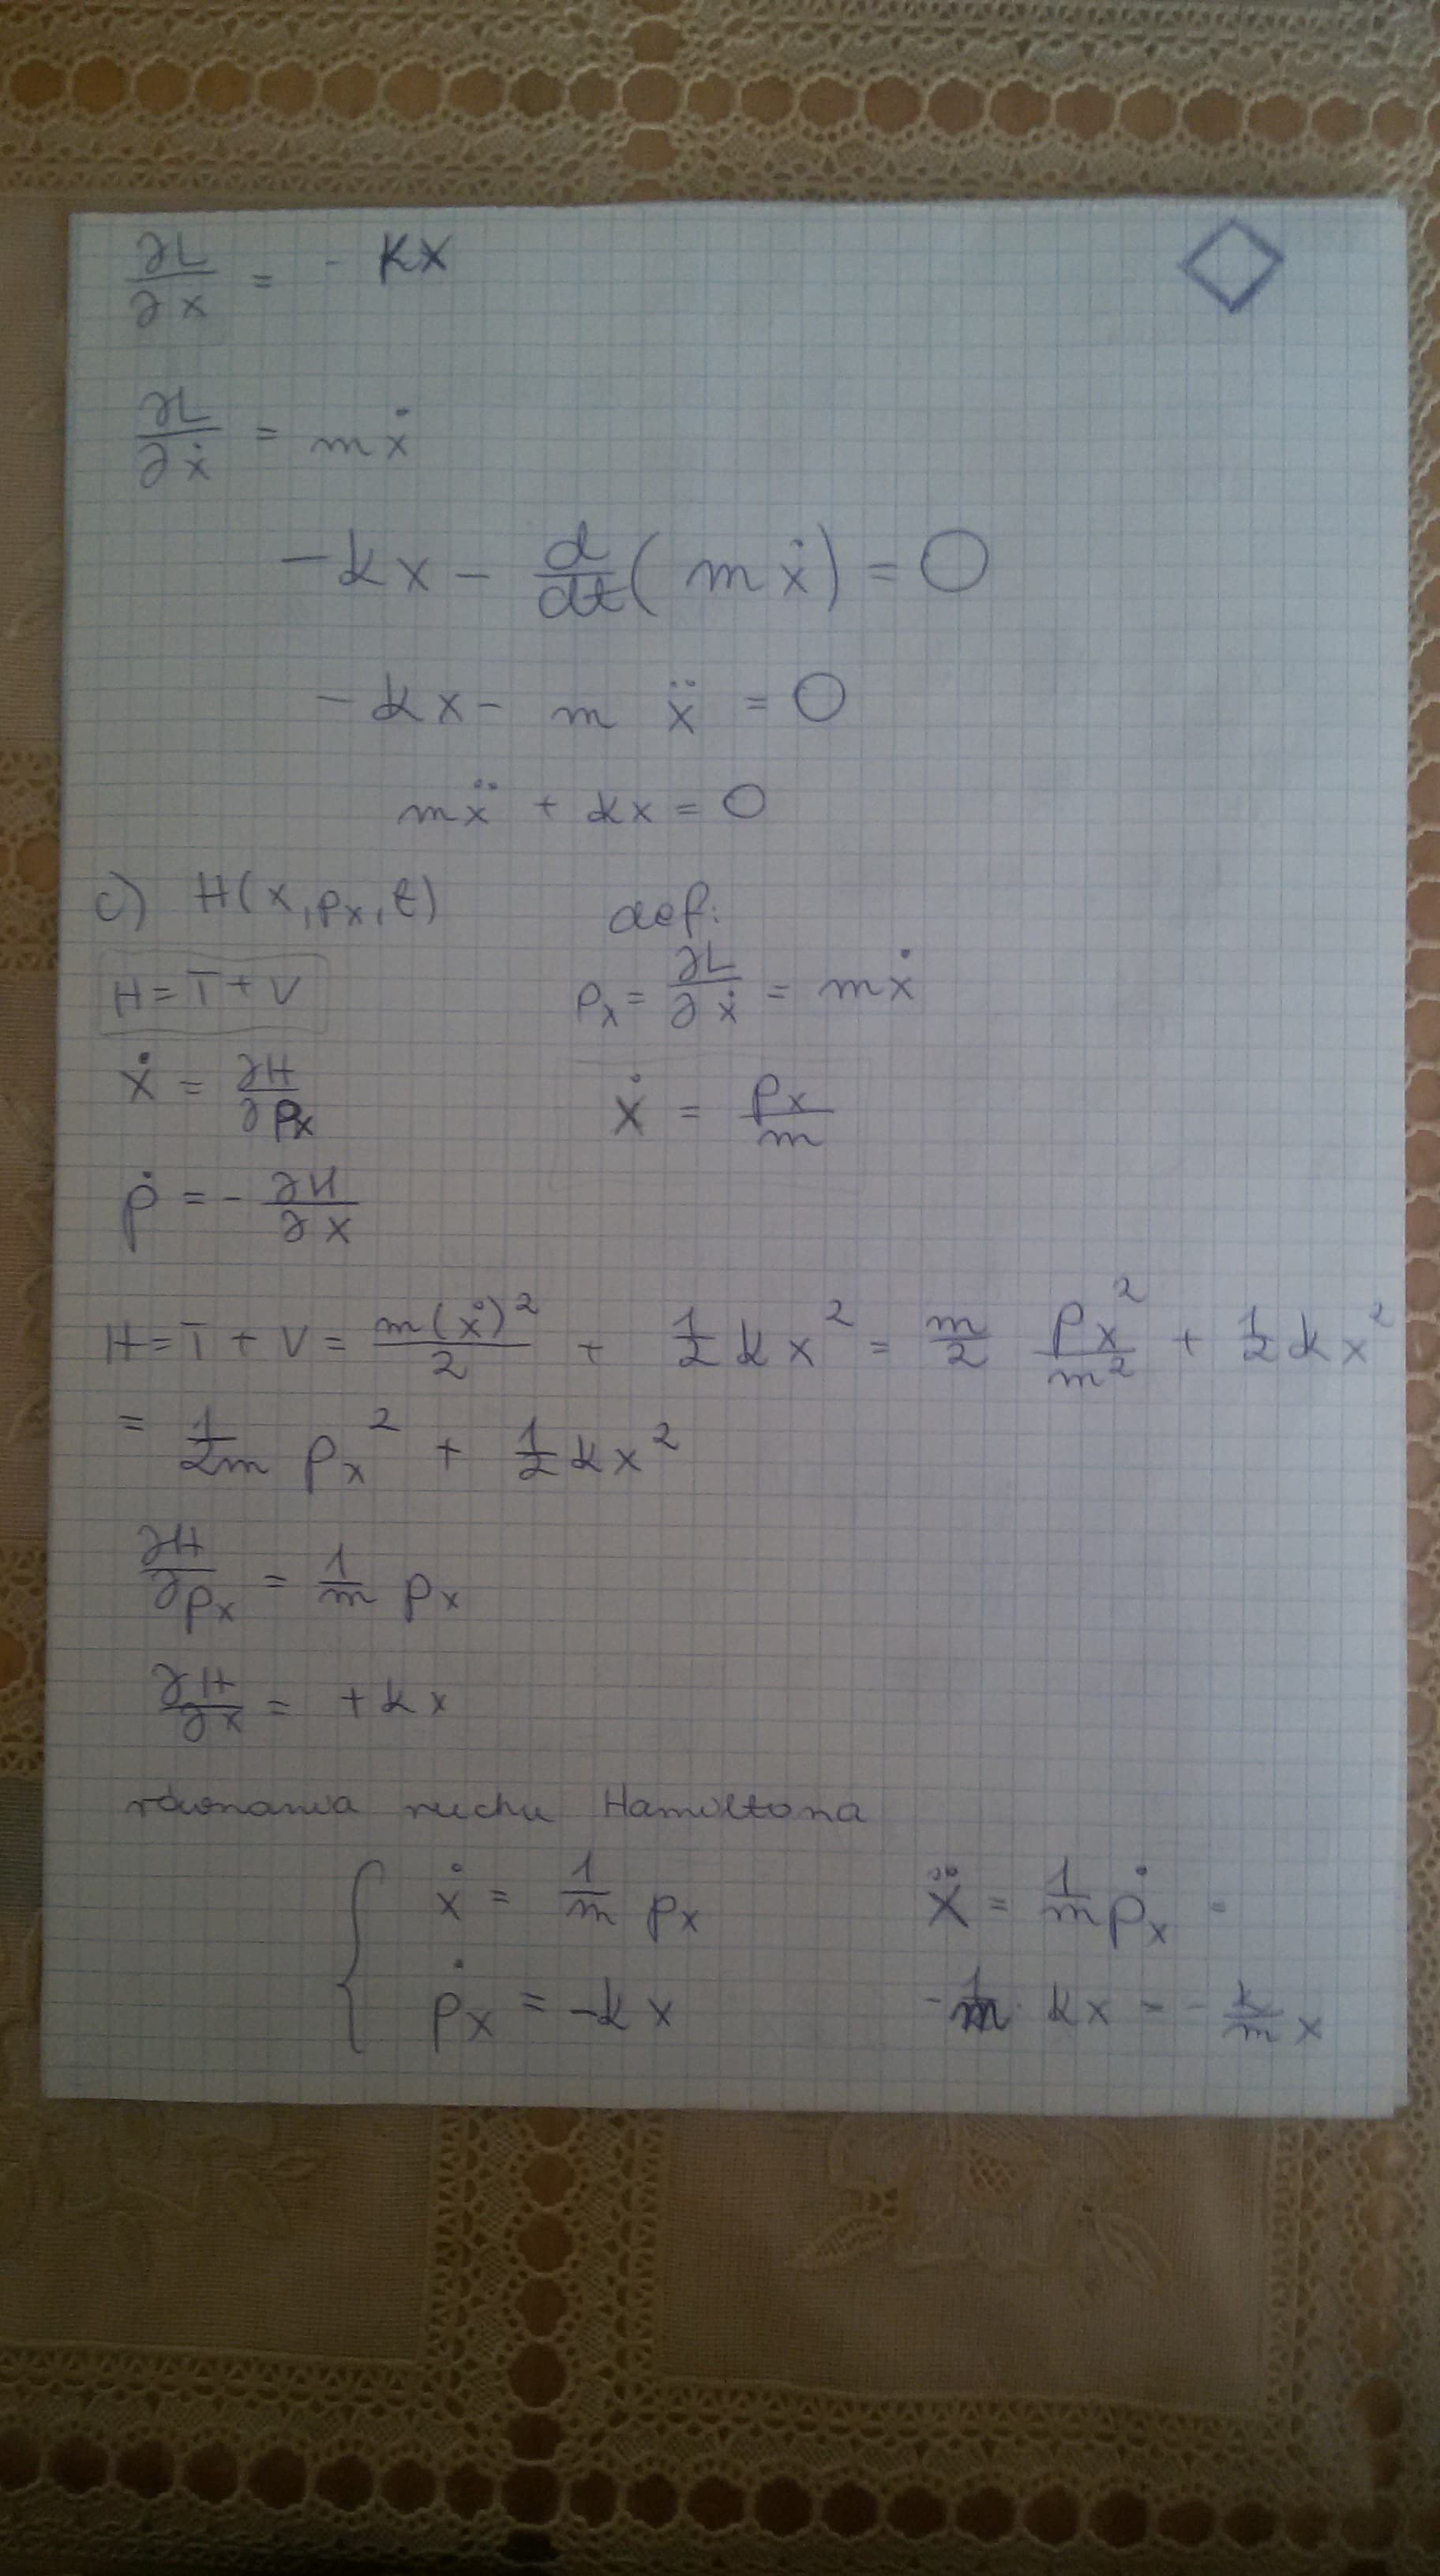 ∂L/∂x = - kx
∂L/∂ẋ = mẋ
-kx - d/dt(mẋ) = 0
-kx - m ẍ = 0
mẍ + kx = 0
c) H(x, pₓ, t)
def:
H = T + V
pₓ = ∂L/∂ẋ = mẋ
ẋ = ∂H/∂pₓ
ẋ = pₓ/m
ṗ = - ∂H/∂x
H = T + V = m(ẋ)²/2 + 1/2 kx² = m/2 pₓ²/m² + 1/2 kx²
= 1/2m pₓ² + 1/2 kx²
∂H/∂pₓ = 1/m pₓ
∂H/∂x = + kx
równania ruchu Hamiltona
{ ẋ = 1/m pₓ
ṗₓ = -kx
ẍ = 1/m ṗₓ =
- 1/m kx = - k/m x